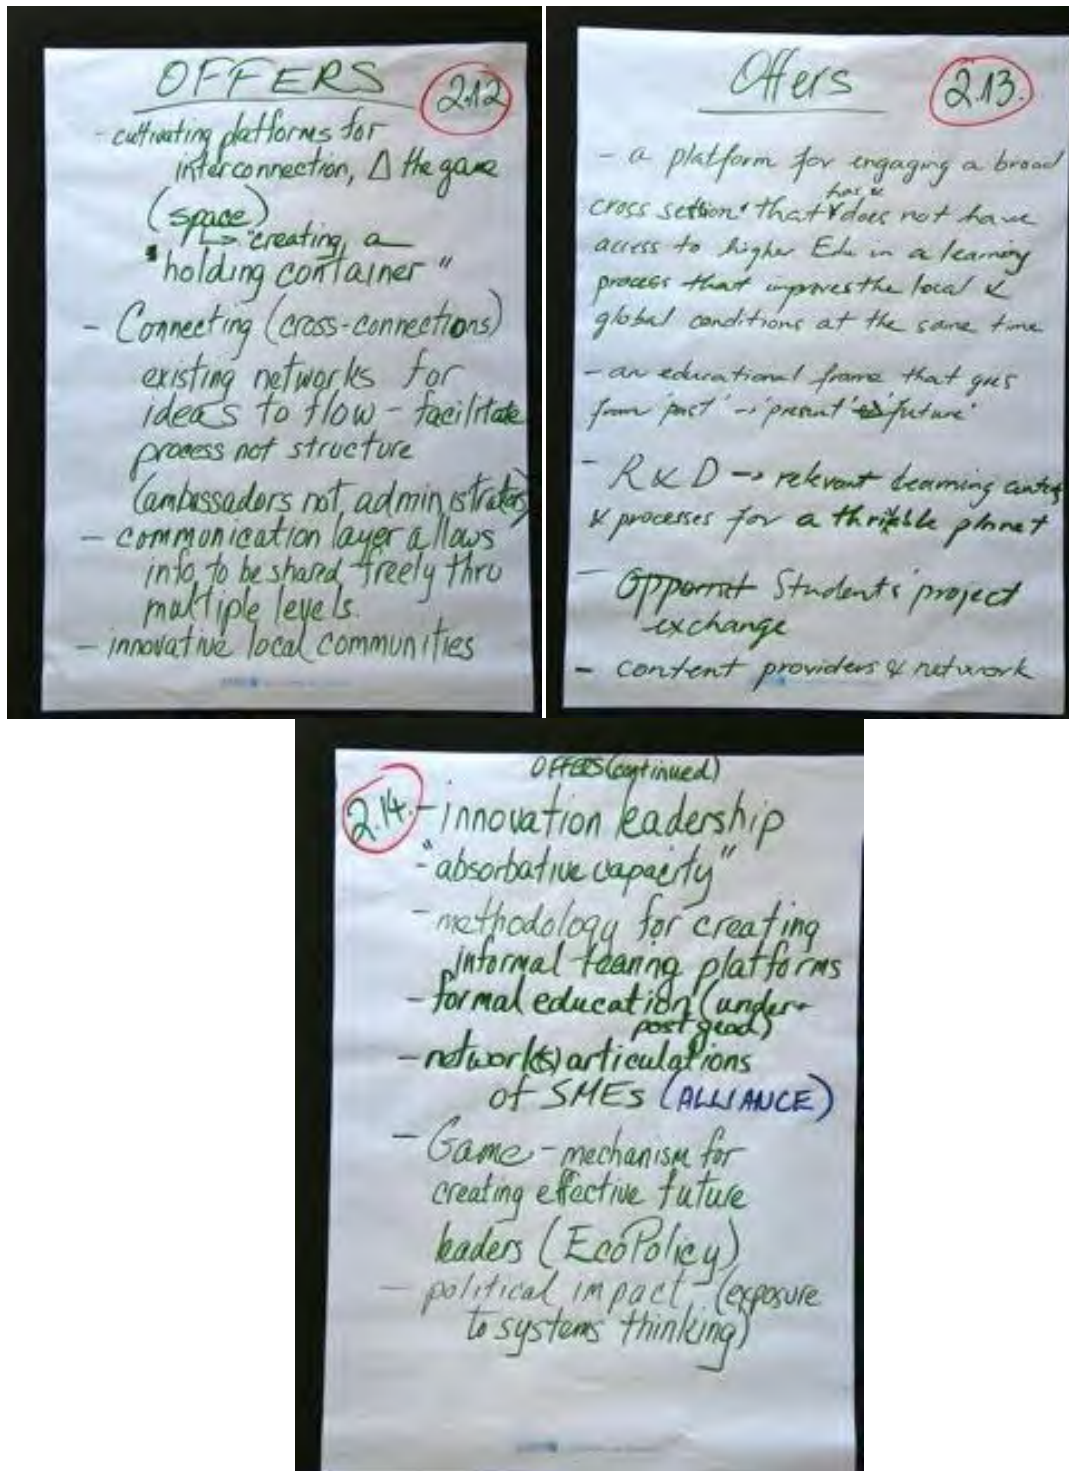 OFFERS
2.12
- cultivating platforms for
interconnection, Δ the game
(space)
↳ creating a
"holding container"
- Connecting (cross-connections)
existing networks for
ideas to flow - facilitate
process not structure
(ambassadors not administrators)
- communication layer allows
info to be shared freely thru
multiple levels.
- innovative local communities
Offers
2.13.
- a platform for engaging a broad
has &
cross section that does not have
access to higher Edu in a learning
process that improves the local &
global conditions at the same time
- an educational frame that goes
from 'past' → 'present' 'future'
- R & D → relevant learning
& processes for a planet
- Students' project
exchange
- content providers & network
OFFERS (continued)
2.14.
- innovation leadership
- "absorbative capacity"
- methodology for creating
informal platforms
- formal education (under +
post grad)
- network(s) articulations
of SMEs (ALLIANCE)
- Game - mechanism for
creating effective future
leaders (EcoPolicy)
- political impact - (exposure
to systems thinking)